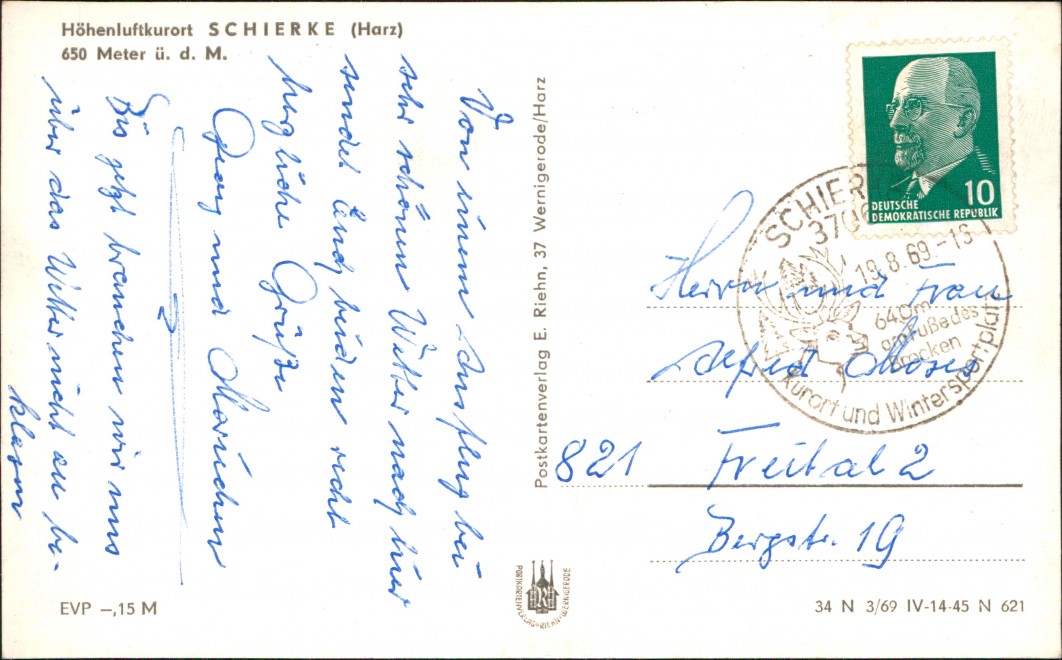 Höhenluftkurort SCHIERKE (Harz)
650 Meter ü. d. M.
Von einem Ausflug bei
sehr schönem Wetter nach hier
sendet Euch beiden recht
herzliche Grüße
Georg und Mariechen
Bis jetzt brauchen wir uns
über das Wetter nicht zu be-
klagen
EVP –,15 M
Postkartenverlag E. Riehn, 37 Wernigerode/Harz
POSTKARTENVERLAG · RIEHN · WERNIGERODE
10
DEUTSCHE
DEMOKRATISCHE REPUBLIK
SCHIER
370
19.8.69.-
640m
am Fuße des
Brocken
Kurort und Wintersportplatz
Herrn und Frau
Alfred Moses
821 Freital 2
Bergstr. 19
34 N 3/69 IV-14-45 N 621